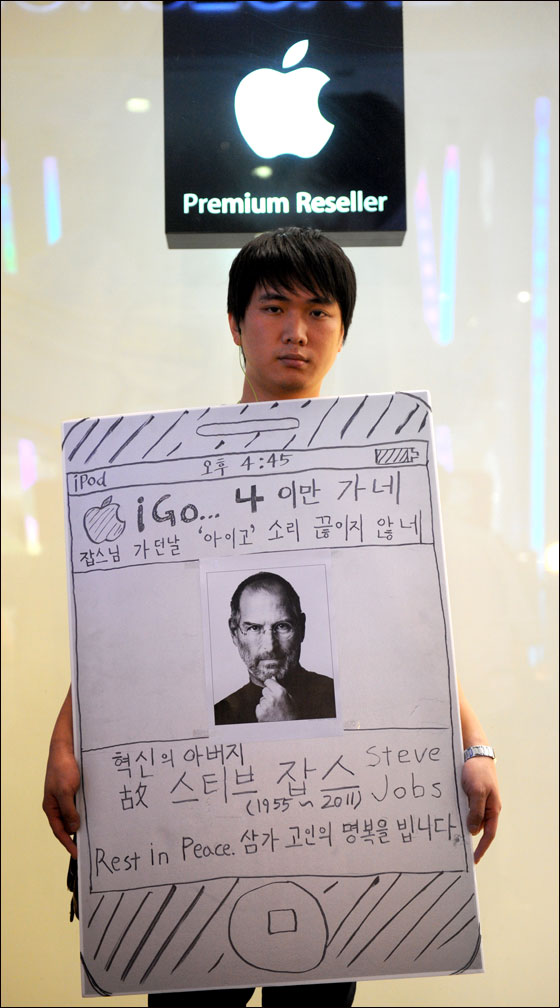 Premium Reseller
오후 4:45
iPod
iGo... 4 이만 가네
잡스님 가던날 '아이고' 소리 끊이지 않네
혁신의 아버지
故 스티브 잡스 Steve Jobs
(1955~2011)
Rest in Peace. 삼가 고인의 명복을 빕니다.